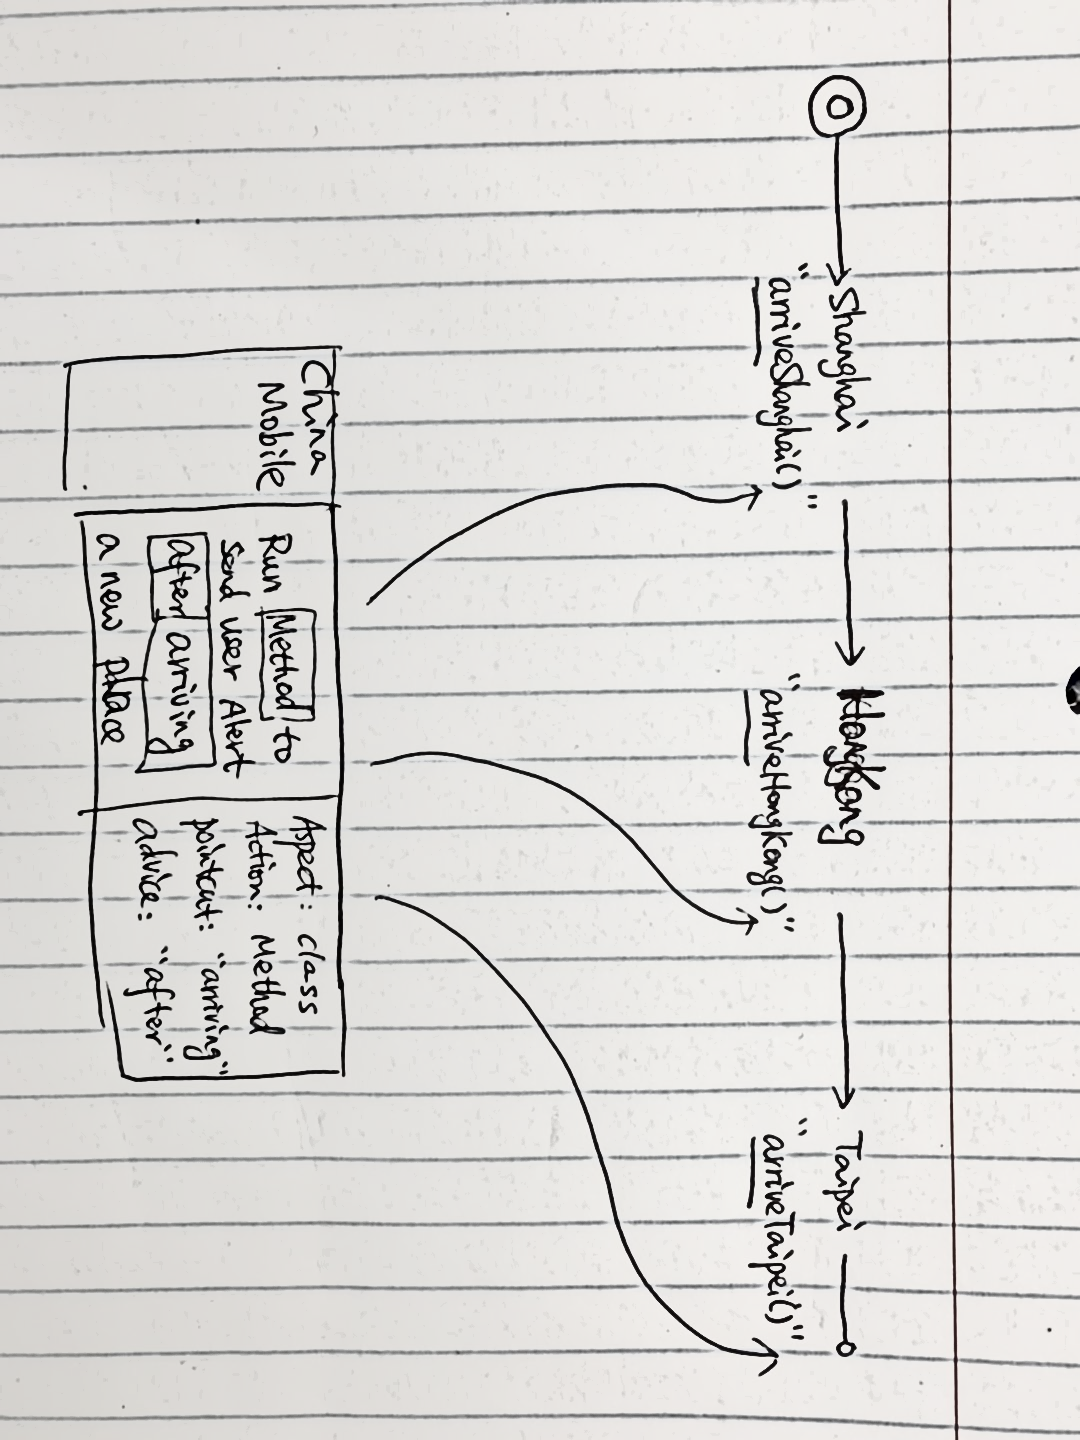 Shanghai
"arriveShanghai()"
HongKong
"arriveHongKong()"
Taipei
"arriveTaipei()"
China
Mobile
Run Method to
send user Alert
after arriving
a new place
Aspect: class
Action: Method
pointcut: "arriving"
advice: "after"